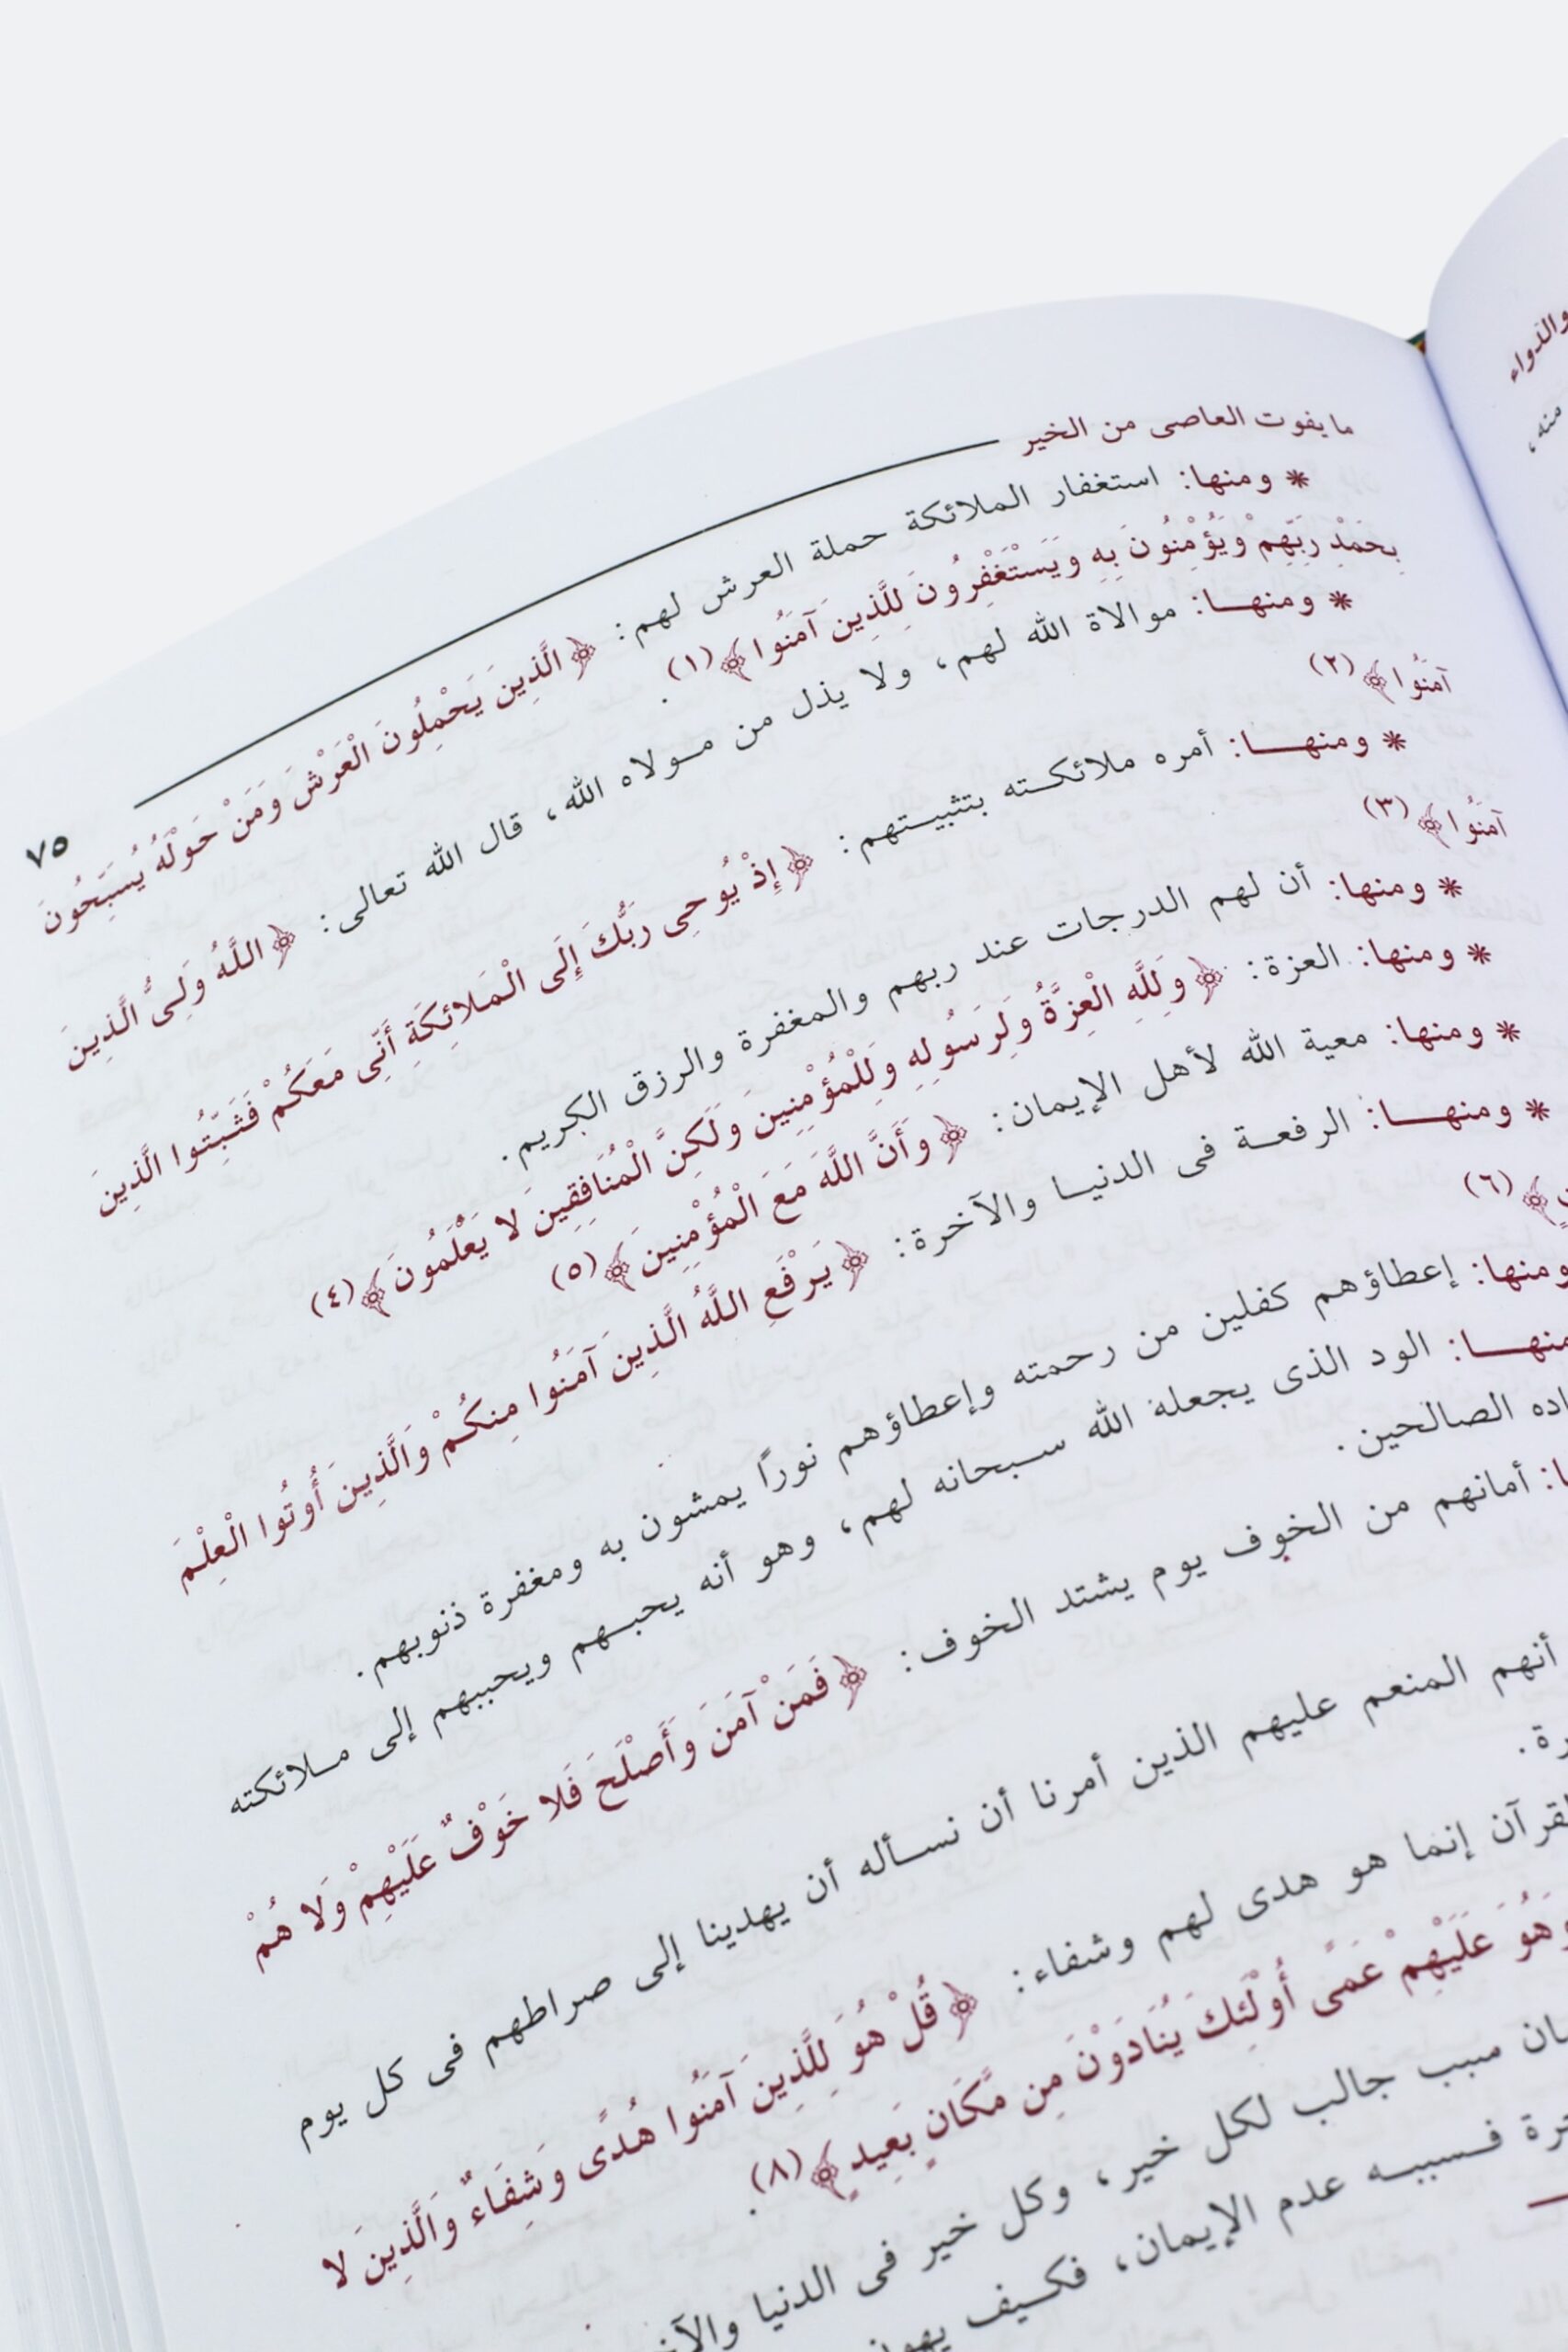 ما يفوت العاصى من الخير
٧٥
* ومنها: استغفار الملائكة حملة العرش لهم: ﴿الَّذِينَ يَحْمِلُونَ الْعَرْشَ وَمَنْ حَوْلَهُ يُسَبِّحُونَ
بِحَمْدِ رَبِّهِمْ وَيُؤْمِنُونَ بِهِ وَيَسْتَغْفِرُونَ لِلَّذِينَ آمَنُوا﴾(١).
* ومنهـا: موالاة الله لهم، ولا يذل من مـولاه الله، قال الله تعالى: ﴿اللَّهُ وَلِىُّ الَّذِينَ
آمَنُوا﴾(٢)
* ومنهـا: أمره ملائكـته بتثبيـتهم: ﴿إِذْ يُوحِى رَبُّكَ إِلَى الْمَلائِكَةِ أَنِّى مَعَكُمْ فَثَبِّتُوا الَّذِينَ
آمَنُوا﴾(٣)
* ومنها: أن لهم الدرجات عند ربهم والمغفرة والرزق الكريم.
* ومنها: العزة: ﴿وَلِلَّهِ الْعِزَّةُ وَلِرَسُولِهِ وَلِلْمُؤْمِنِينَ وَلَكِنَّ الْمُنَافِقِينَ لا يَعْلَمُونَ﴾(٤)
* ومنها: معية الله لأهل الإيمان: ﴿وَأَنَّ اللَّهَ مَعَ الْمُؤْمِنِينَ﴾(٥)
* ومنهـا: الرفعـة فى الدنيـا والآخرة: ﴿يَرْفَعِ اللَّهُ الَّذِينَ آمَنُوا مِنكُمْ وَالَّذِينَ أُوتُوا الْعِلْمَ
﴾(٦)
ومنها: إعطاؤهم كفلين من رحمته وإعطاؤهم نورًا يمشون به ومغفرة ذنوبهم.
الود الذى يجعله الله سـبحانه لهم، وهو أنه يحبـهم ويحببهم إلى مـلائكته
الصالحين.
أمانهم من الخوف يوم يشتد الخوف: ﴿فَمَنْ آمَنَ وَأَصْلَحَ فَلا خَوْفٌ عَلَيْهِمْ وَلا هُمْ
أنهم المنعم عليهم الذين أمرنا أن نسـأله أن يهدينا إلى صراطهم فى كل يوم
إنما هو هدى لهم وشفاء: ﴿قُلْ هُوَ لِلَّذِينَ آمَنُوا هُدًى وَشِفَاءٌ وَالَّذِينَ لا
وَهُوَ عَلَيْهِمْ عَمًى أُوْلَئِكَ يُنَادَوْنَ مِن مَّكَانٍ بَعِيدٍ﴾(٨).
جالب لكل خير، وكل خير فى الدنيا
فـسببـه عدم الإيمان، فكـيف
والدواء
منه،